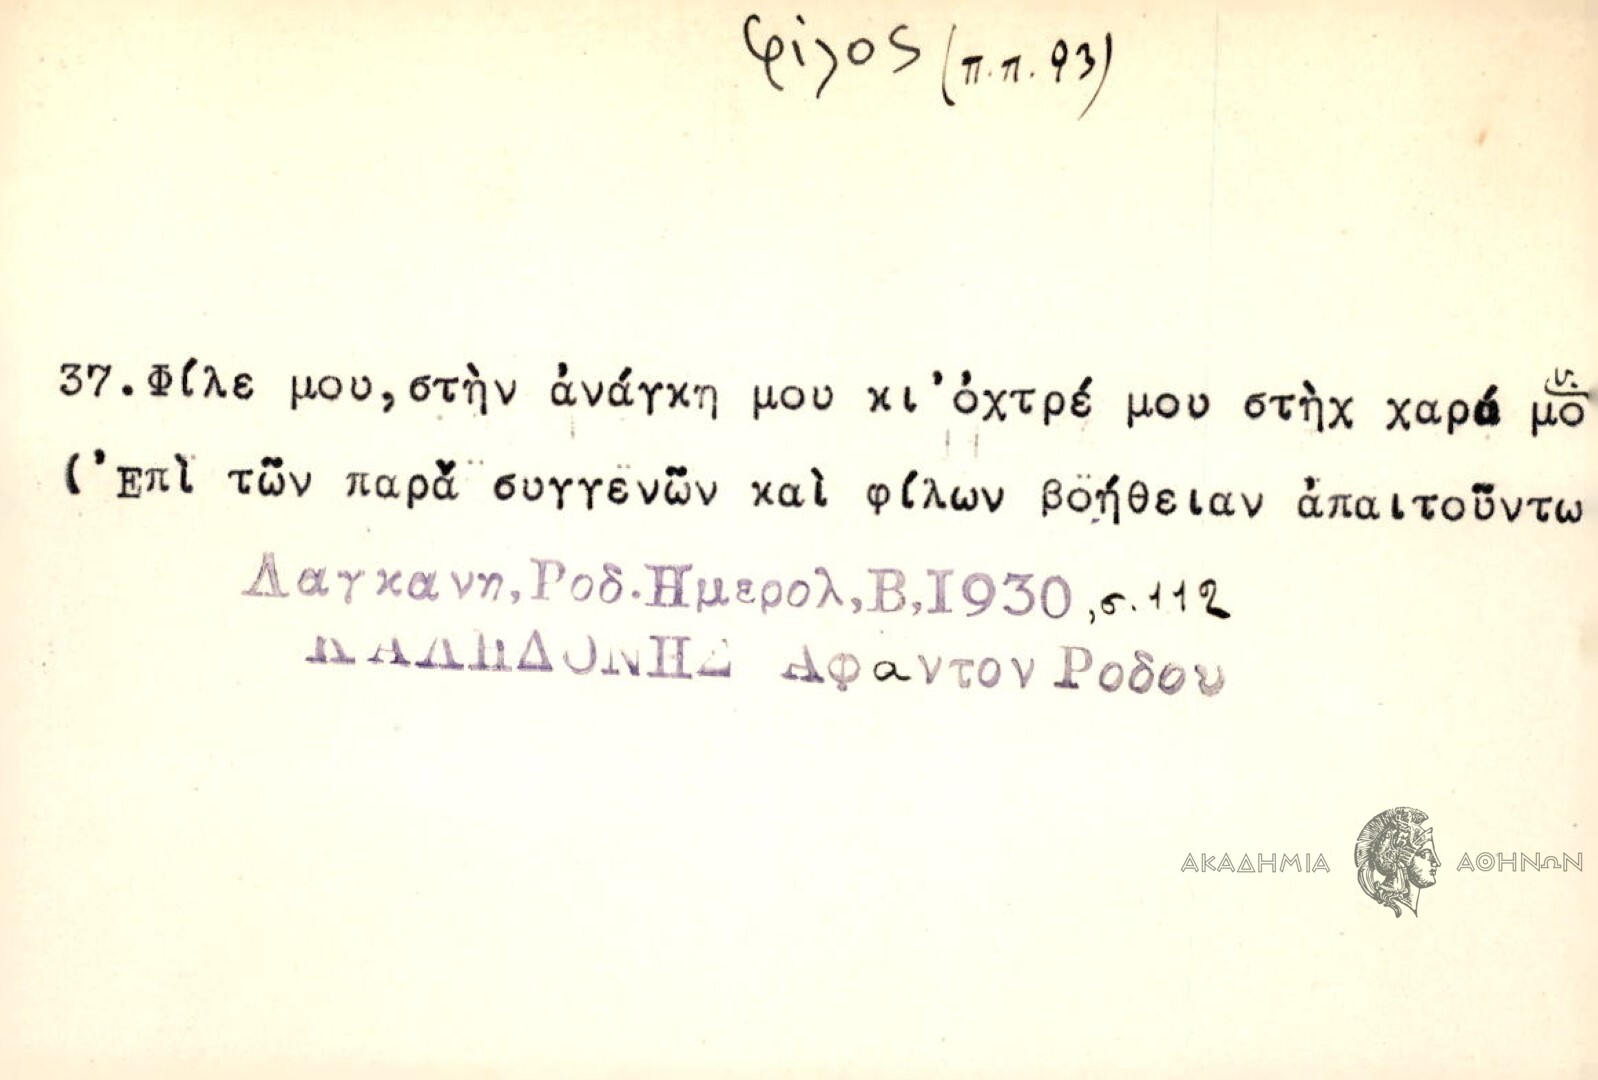 φίλος (π.π. 93)
37.Φίλε μου,στὴν ἀνάγκη μου κι'ὀχτρέ μου στὴχ χαρά μου
('Επὶ τῶν παρὰ συγγενῶν καὶ φίλων βοήθειαν ἀπαιτούντω
Λαγκανη,Ροδ.Ημερολ,Β,Ι930,σ.112
Αφαντον Ροδου
ΑΚΑΔΗΜΙΑ ΑΘΗΝΩΝ